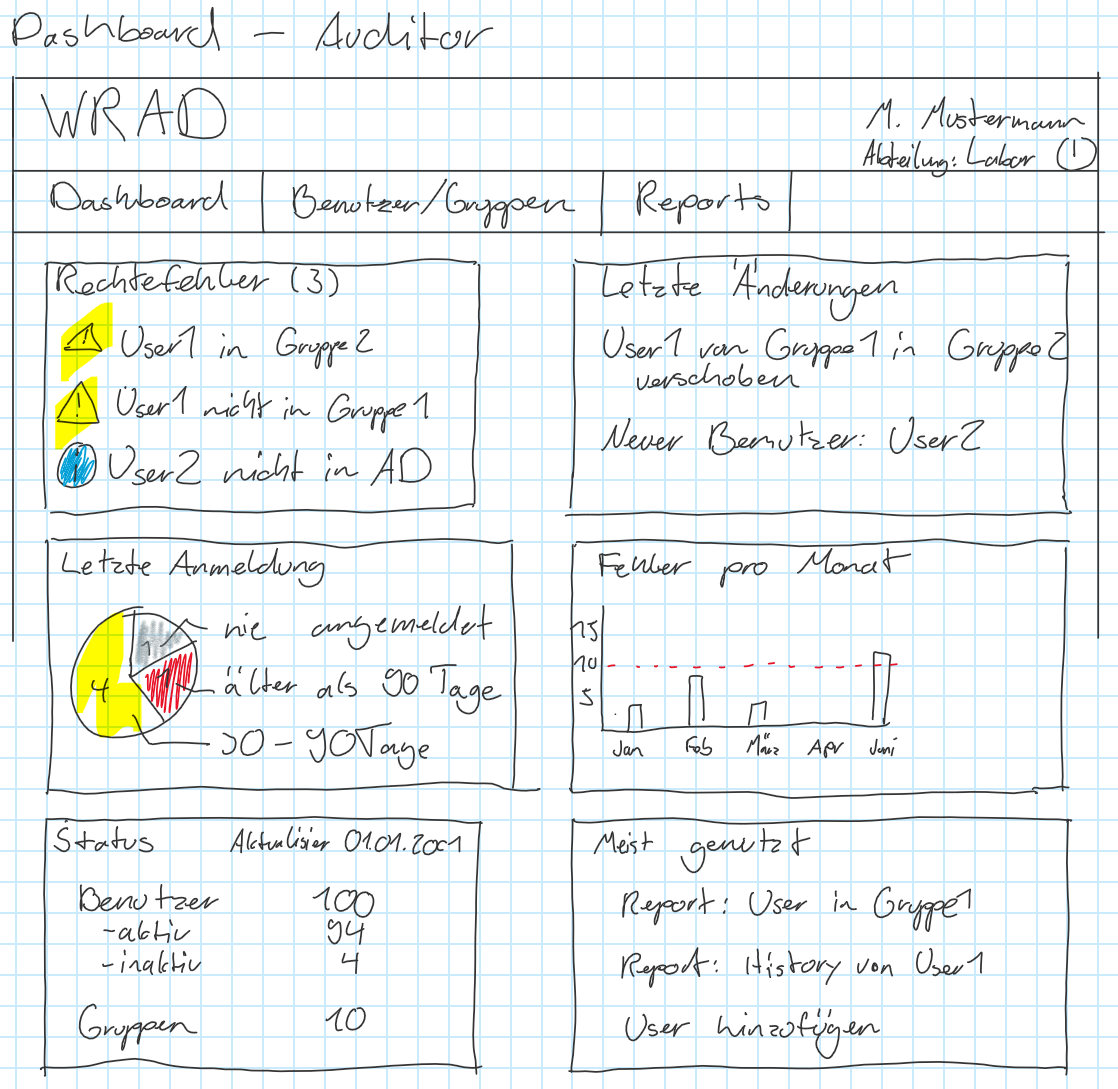 Dashboard – Auditor
WRAD
M. Mustermann
Abteilung: Labor
Dashboard
Benutzer/Gruppen
Reports
Rechtefehler (3)
! User1 in Gruppe2
! User1 nicht in Gruppe1
i User2 nicht in AD
Letzte Änderungen
User1 von Gruppe1 in Gruppe2
verschoben
Neuer Benutzer: User2
Letzte Anmeldung
1 nie angemeldet
1 älter als 90 Tage
4
30 – 90 Tage
Fehler pro Monat
15
10
5
Jan Feb März Apr Juni
Status Aktualisier 01.01.2001
Benutzer 100
-aktiv 94
-inaktiv 4
Gruppen 10
Meist genutzt
Report: User in Gruppe1
Report: History von User1
User hinzufügen